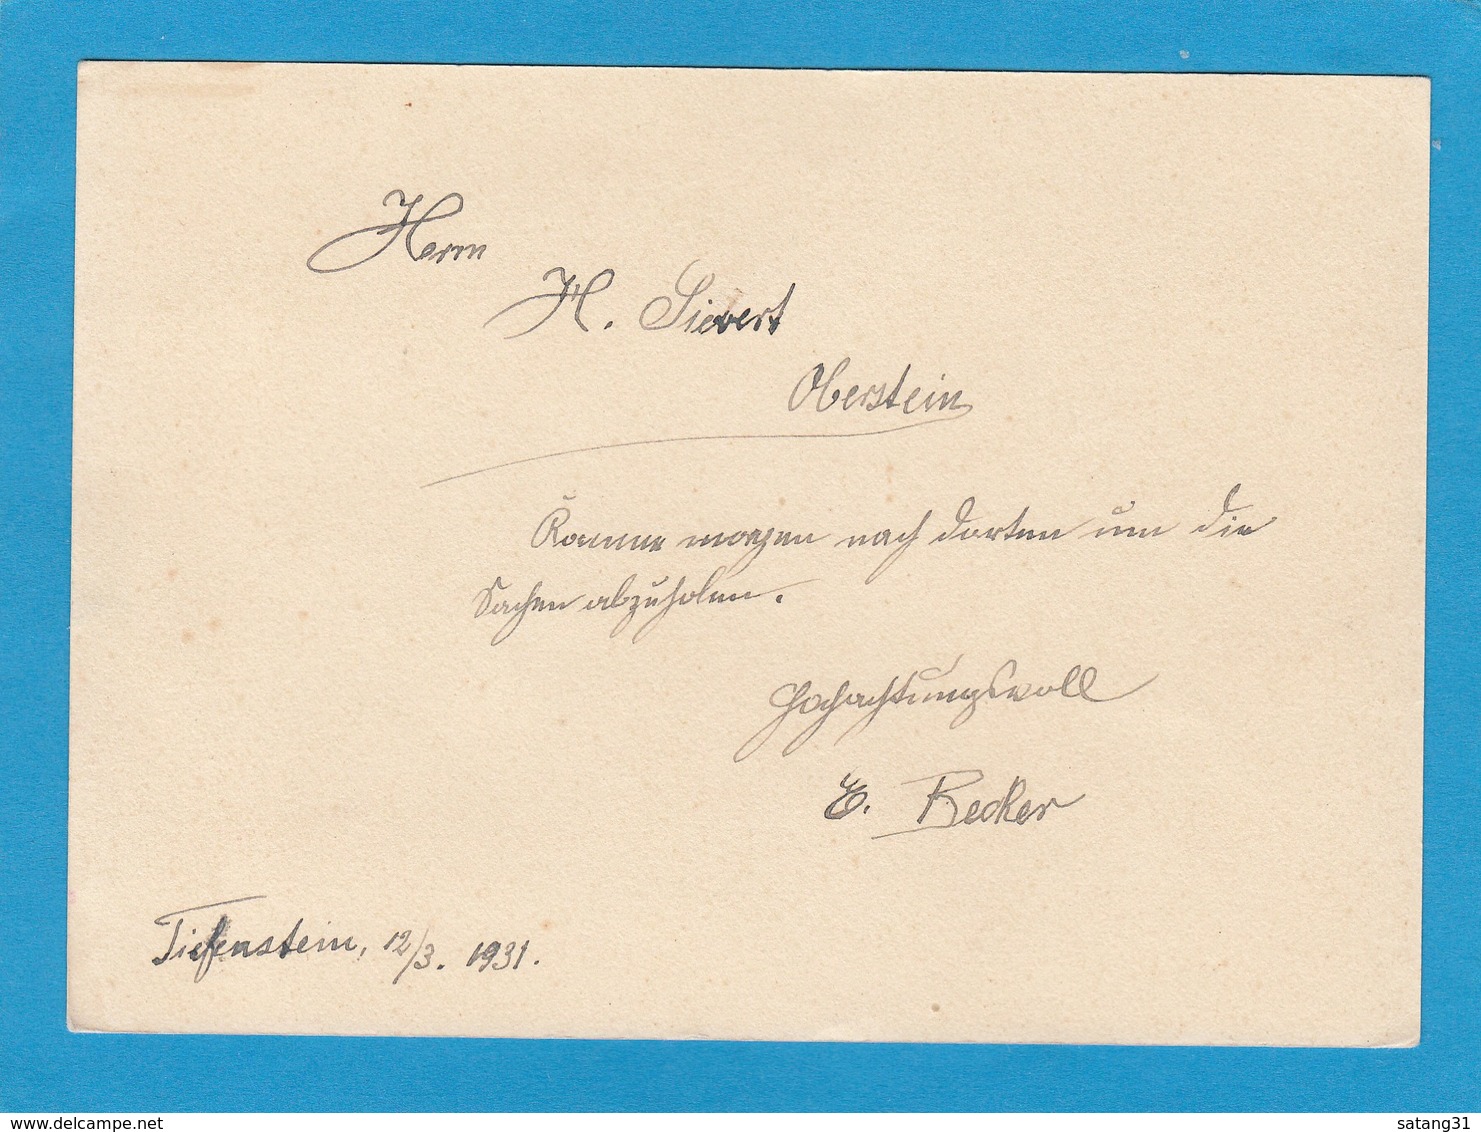 Herrn
H. Sievert
Oberstein
Komme morgen nach dorten um die
Sachen abzuholen.
Hochachtungsvoll
E. Becker
Tiefenstein, 12/3. 1931.
delcampe.net
satang31